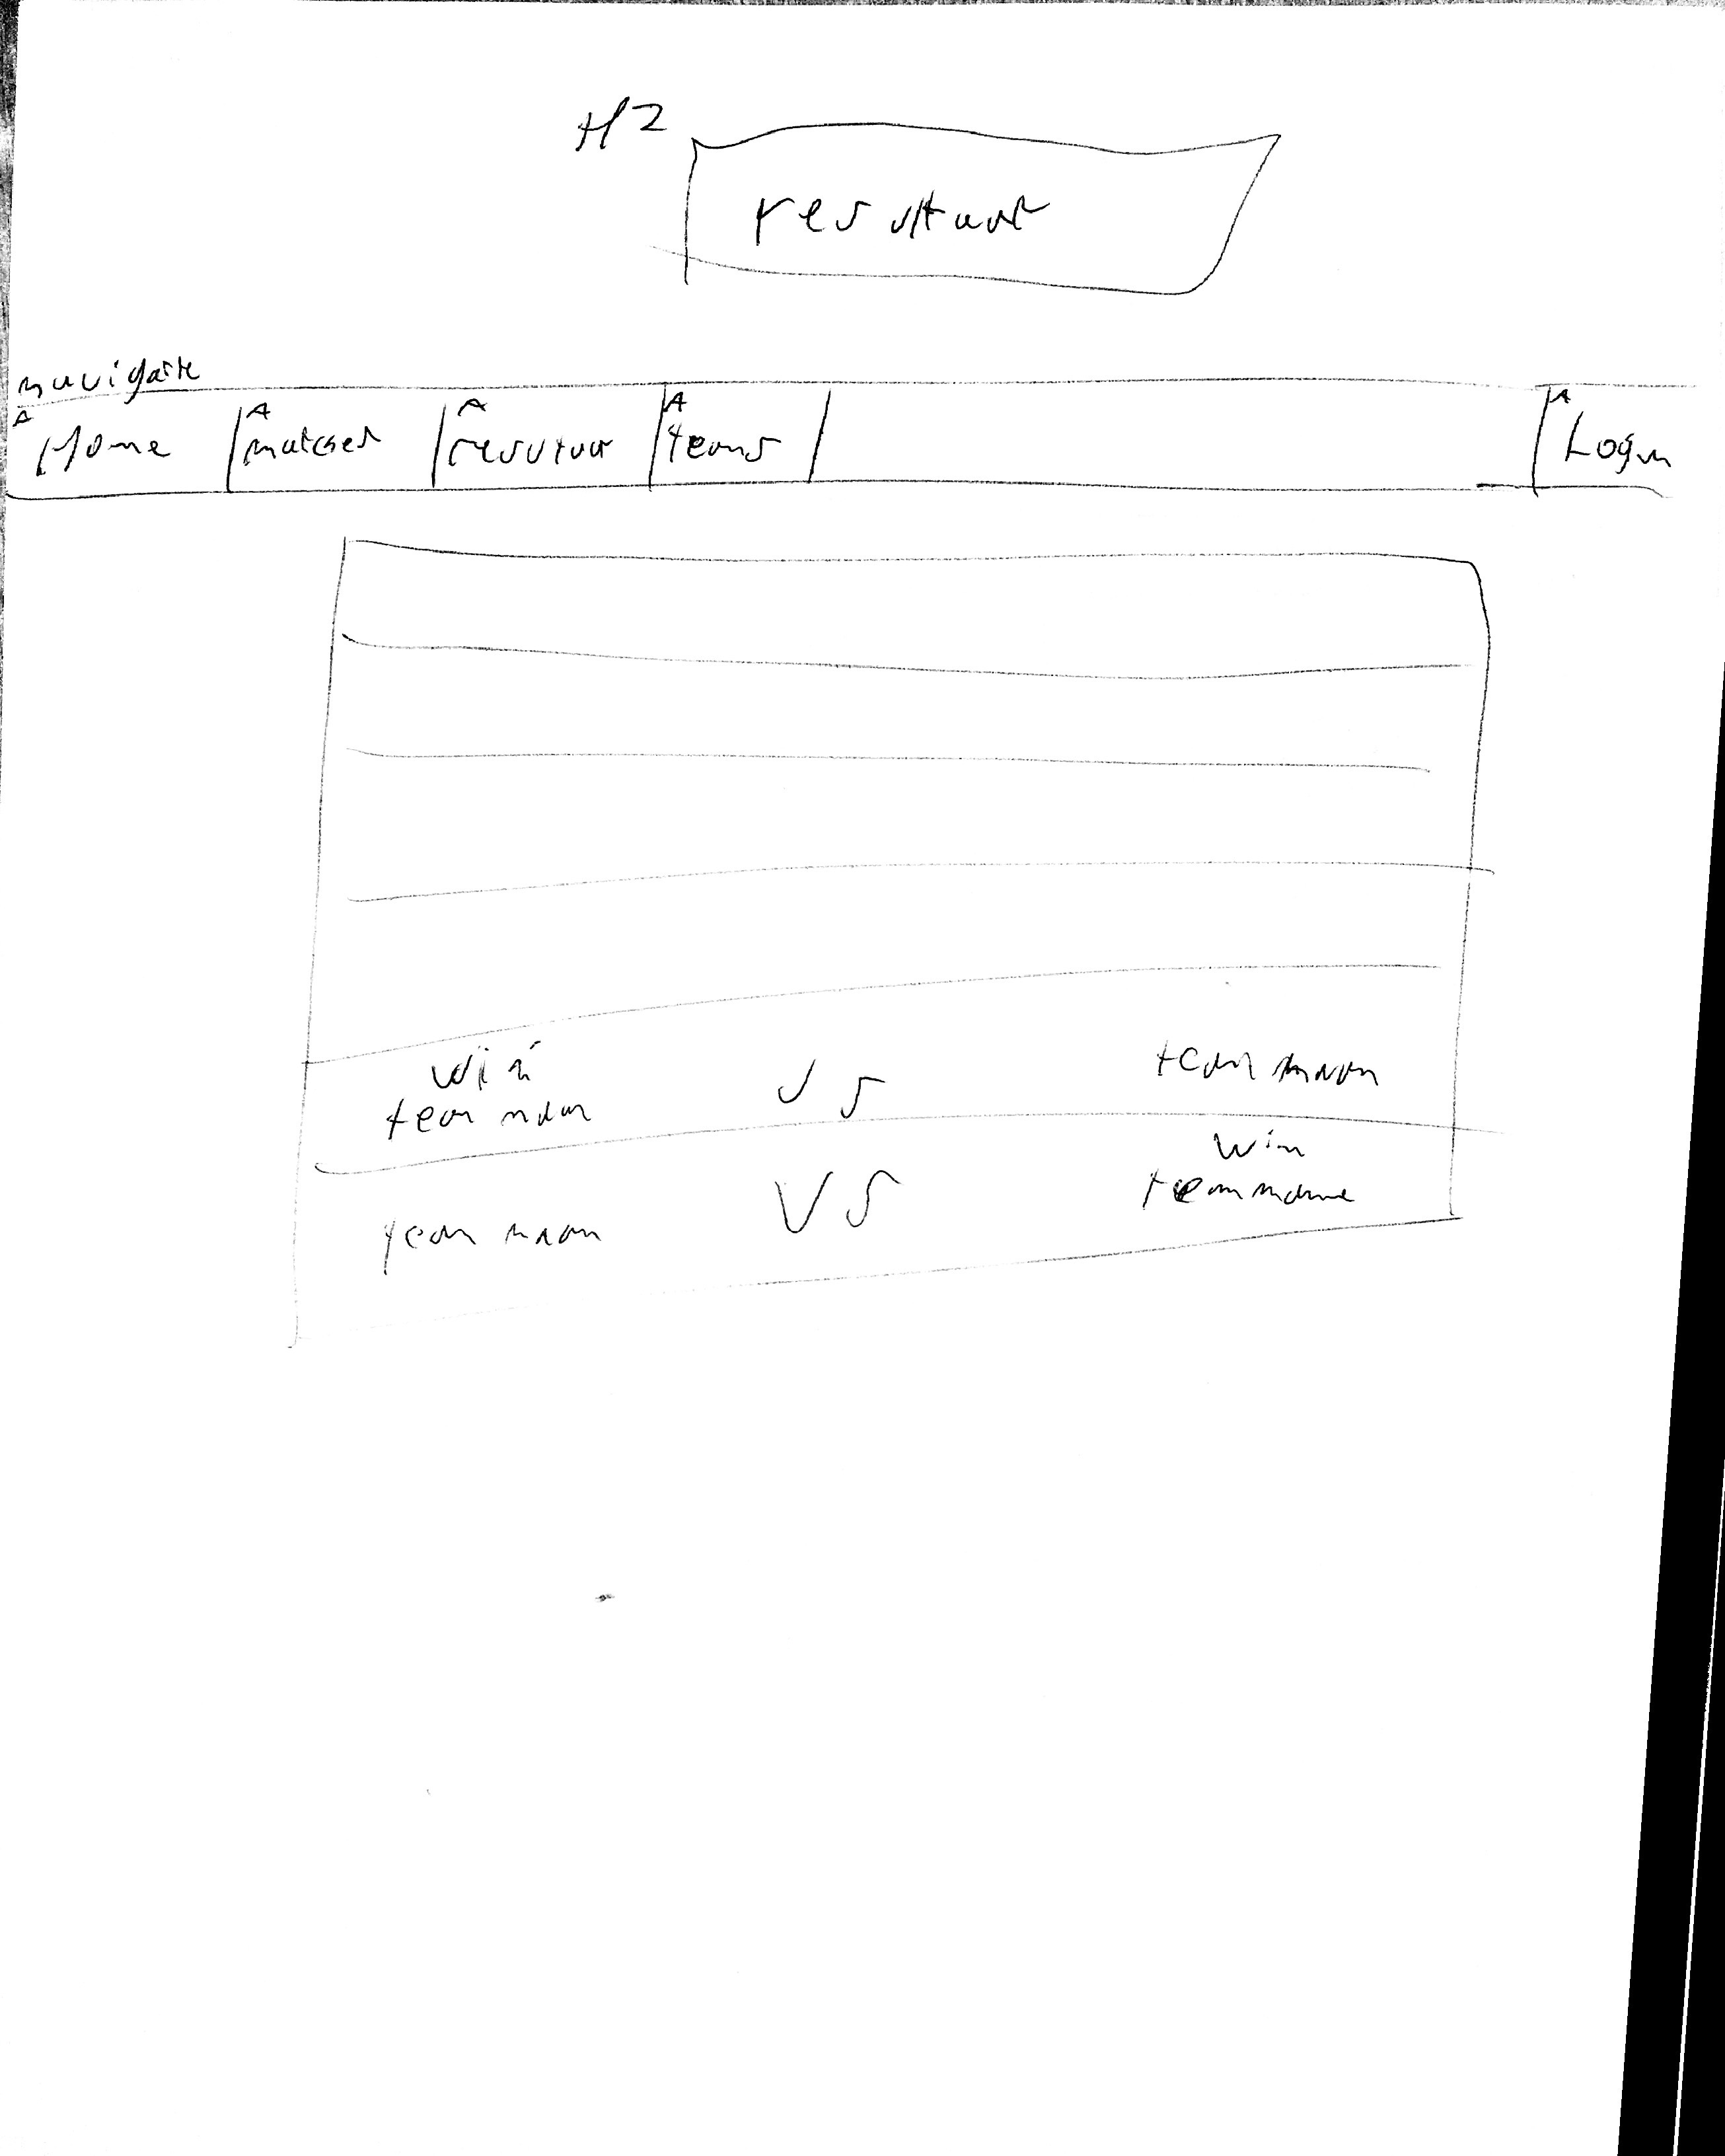 H2
resultaat
navigatie
A A A A A
Home matches resultaat teams Login
win
team naam VS team naam
win
team naam VS team name